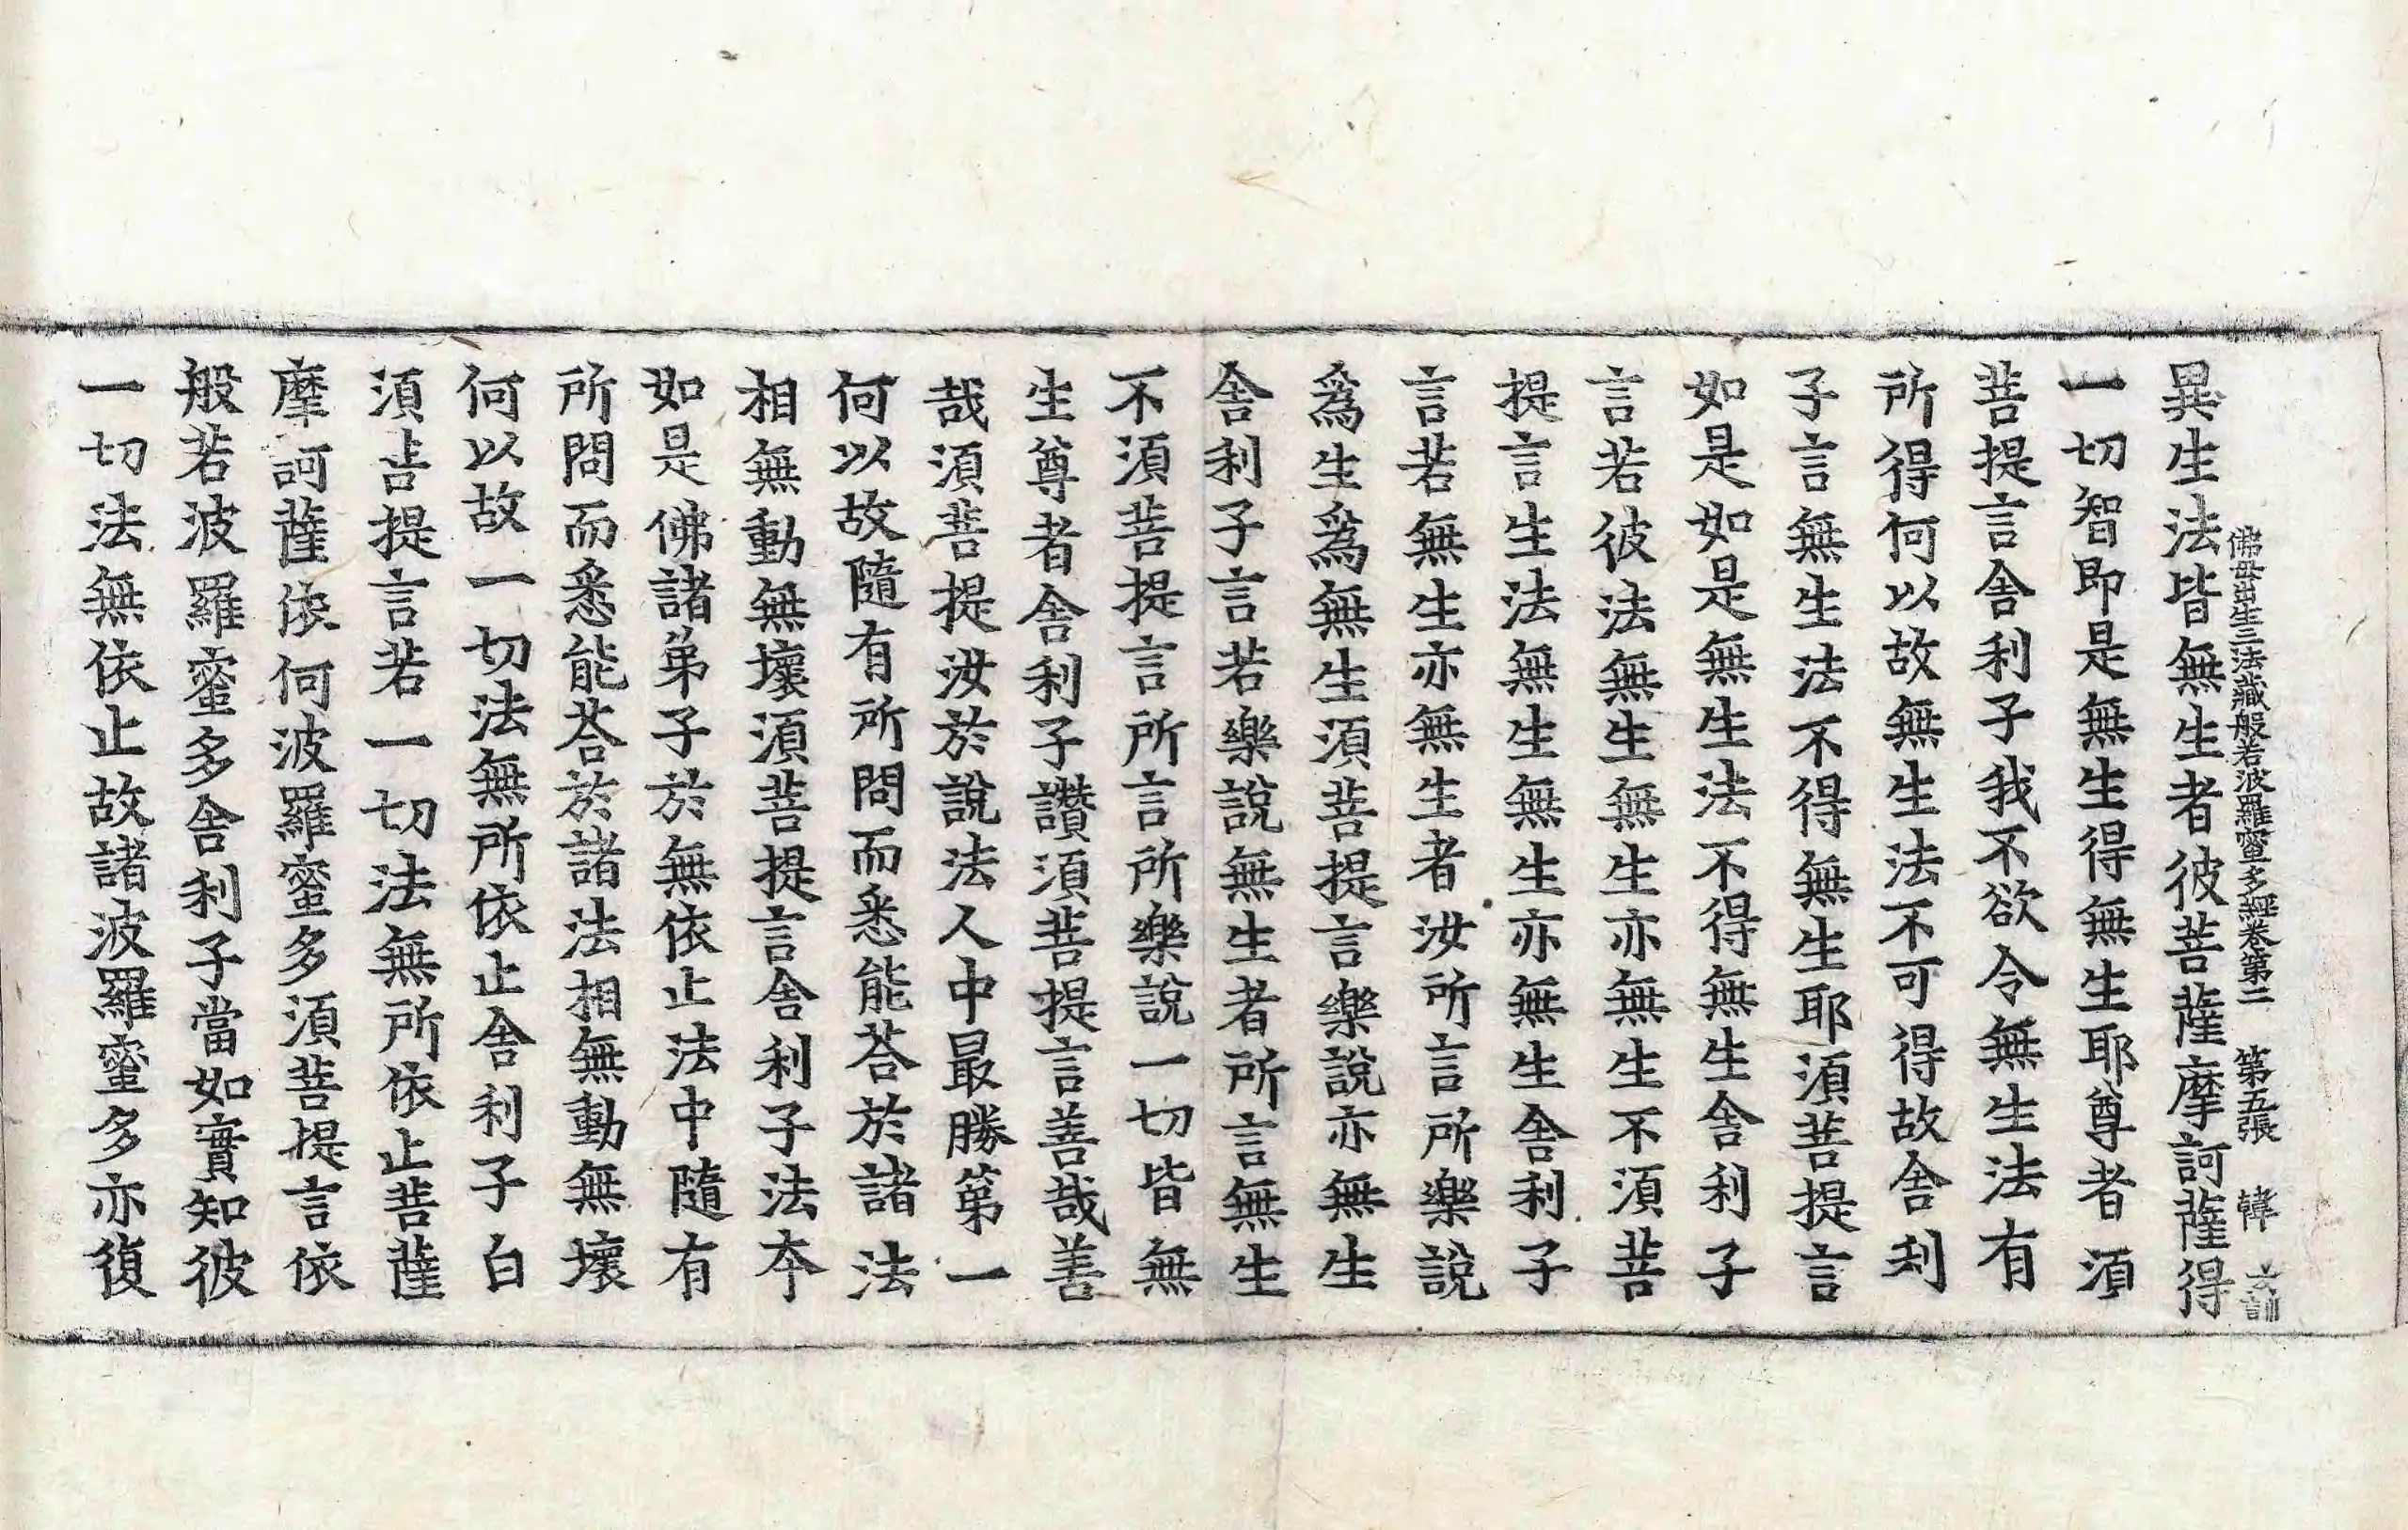 佛母出生三法藏般若波羅蜜多經卷第二 第五張 韓
異生法皆無生者彼菩薩摩訶薩得
一切智即是無生得無生耶尊者湏
菩提言舍利子我不欲令無生法有
所得何以故無生法不可得故舍利
子言無生法不得無生耶湏菩提言
如是如是無生法不得無生舍利子
言若彼法無生無生亦無生不湏菩
提言生法無生無生亦無生舍利子
言若無生亦無生者汝所言所樂說
爲生爲無生湏菩提言樂說亦無生
舍利子言若樂說無生者所言無生
不湏菩提言所言所樂說一切皆無
生尊者舍利子讚湏菩提言善哉善
哉湏菩提汝於說法人中最勝第一
何以故隨有所問而悉能荅於諸法
相無動無壞湏菩提言舍利子法夲
如是佛諸弟子於無依止法中隨有
所問而悉能荅於諸法相無動無壞
何以故一切法無所依止舍利子白
湏菩提言若一切法無所依止菩薩
摩訶薩依何波羅蜜多湏菩提言依
般若波羅蜜多舍利子當如實知彼
一切法無依止故諸波羅蜜多亦復